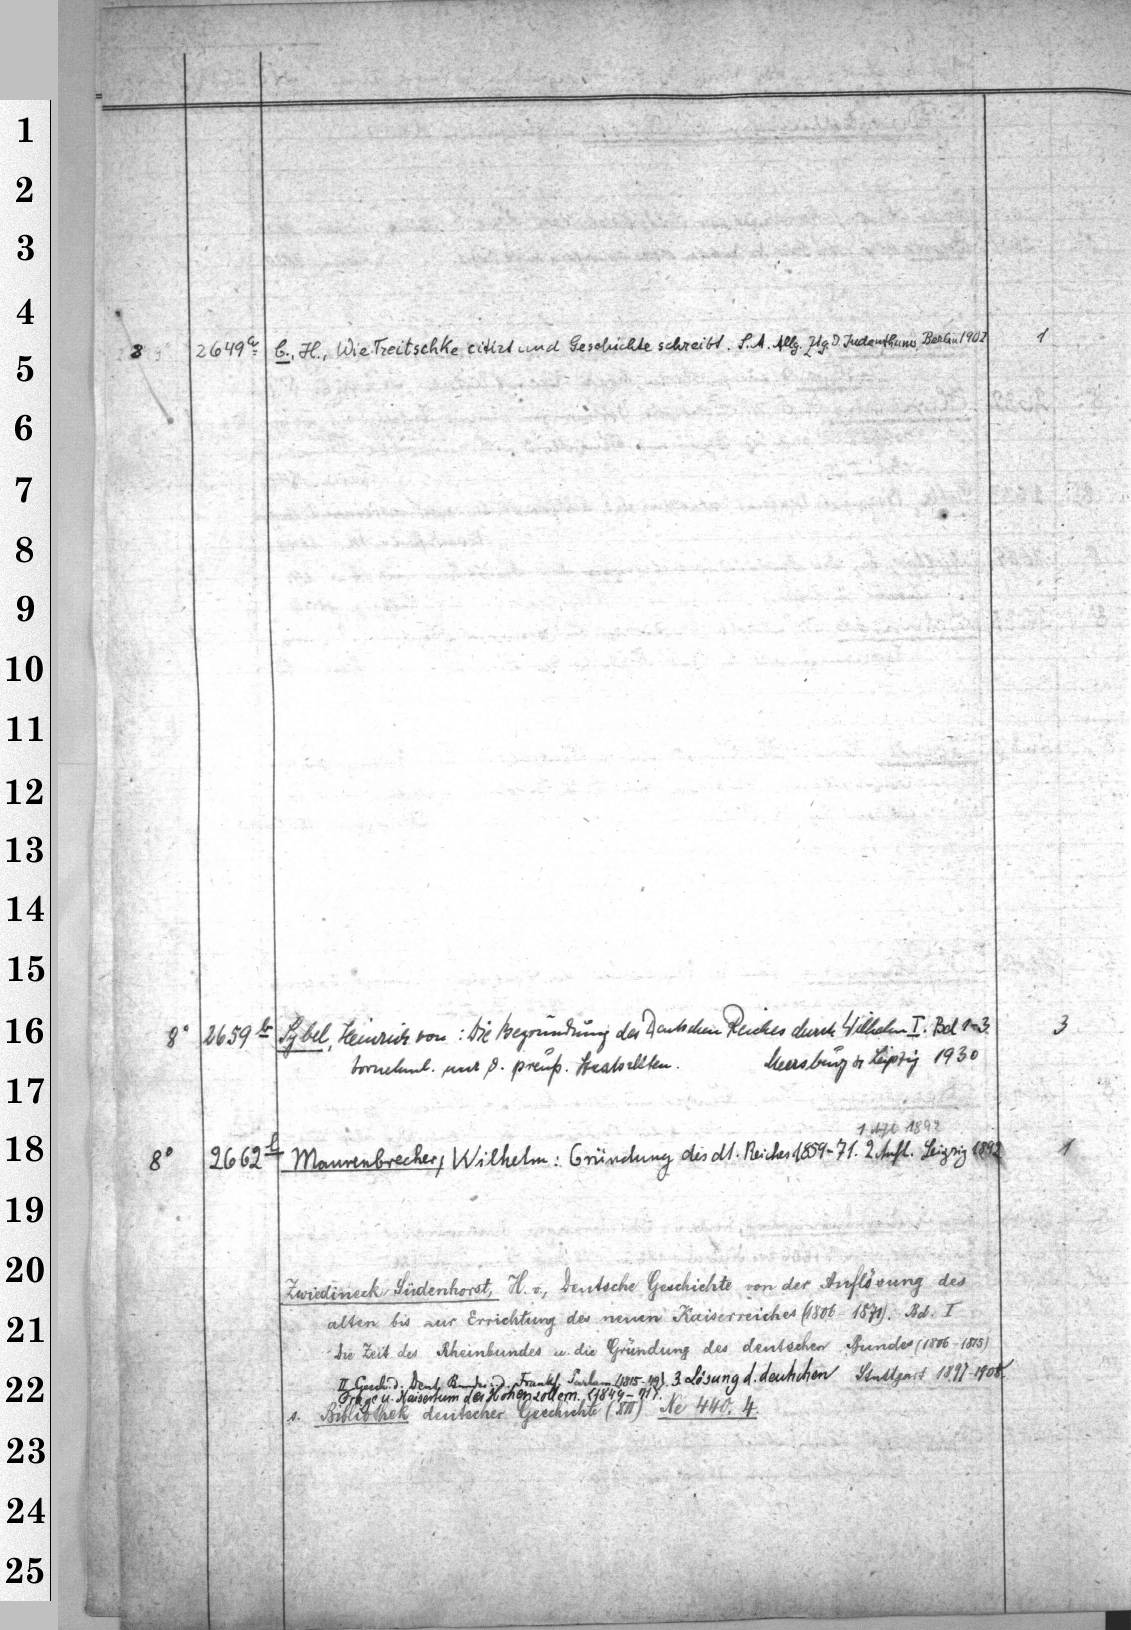 1
2
3
4
8 2649a C., H., Wie Treitschke citirt und Geschichte schreibt. S.A. Allg. Ztg. D. Judenthums, Berlin 1902 1
5
6
7
8
9
10
11
12
13
14
15
16
8° 2659b Sybel, Heinrich von: Die Begründung des Deutschen Reiches durch Wilhelm I. Bd 1-3. 3
vornehml. nach d. preuß. Staatsakten. Meersburg & Leipzig 1930
17
1892
18
8° 2662b Maurenbrecher, Wilhelm: Gründung des dt. Reiches 1859-71. 2. Aufl. Leipzig 1892 1
19
20
Zwiedineck-Südenhorst, H. v., Deutsche Geschichte von der Auflösung des
21
alten bis zur Errichtung des neuen Kaiserreiches (1806-1871). Bd. I
Die Zeit des Rheinbundes u. die Gründung des deutschen Bundes (1806-1815)
22
II. Gesch. d. Deut. Bundes u. d. Frankf. Parlam. (1815-49). 3. Lösung d. deutschen Stuttgart 1897-1905.
Frage u. Kaisertum der Hohenzollern. (1849-71).
s. Bibliothek deutscher Geschichte (XIII) Ne 440. 4.
23
24
25